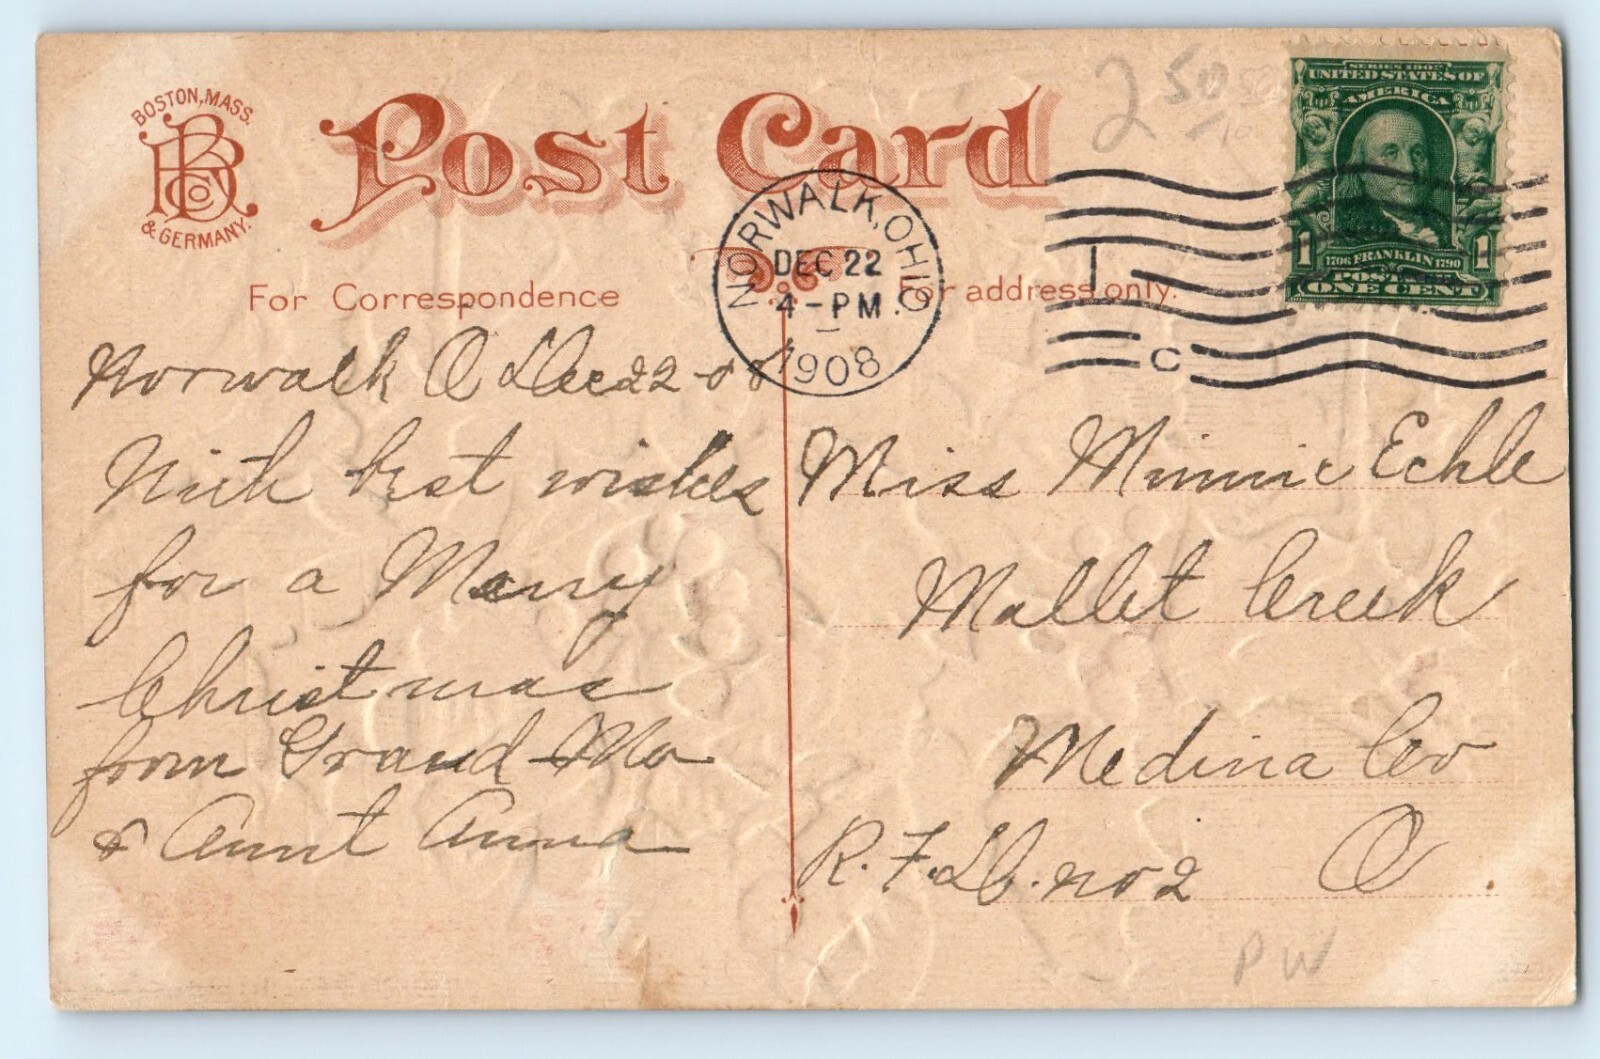 BOSTON, MASS.
BRCo
& GERMANY.
Post Card
2 50
/10
SERIES 1902
UNITED STATES OF
AMERICA
1706 FRANKLIN 1790
1 1
POSTAGE
ONE CENT
NORWALK, OHIO
DEC 22
4-PM
1908
1
C
For Correspondence
For address only.
Norwalk O Dec 22-08
With best wishes
for a Merry
Christmas
from Grand-Ma
& Aunt Anna
Miss Minnie Echle
Mallet Creek
Medina Co
R.F.D. no 2 O
PW